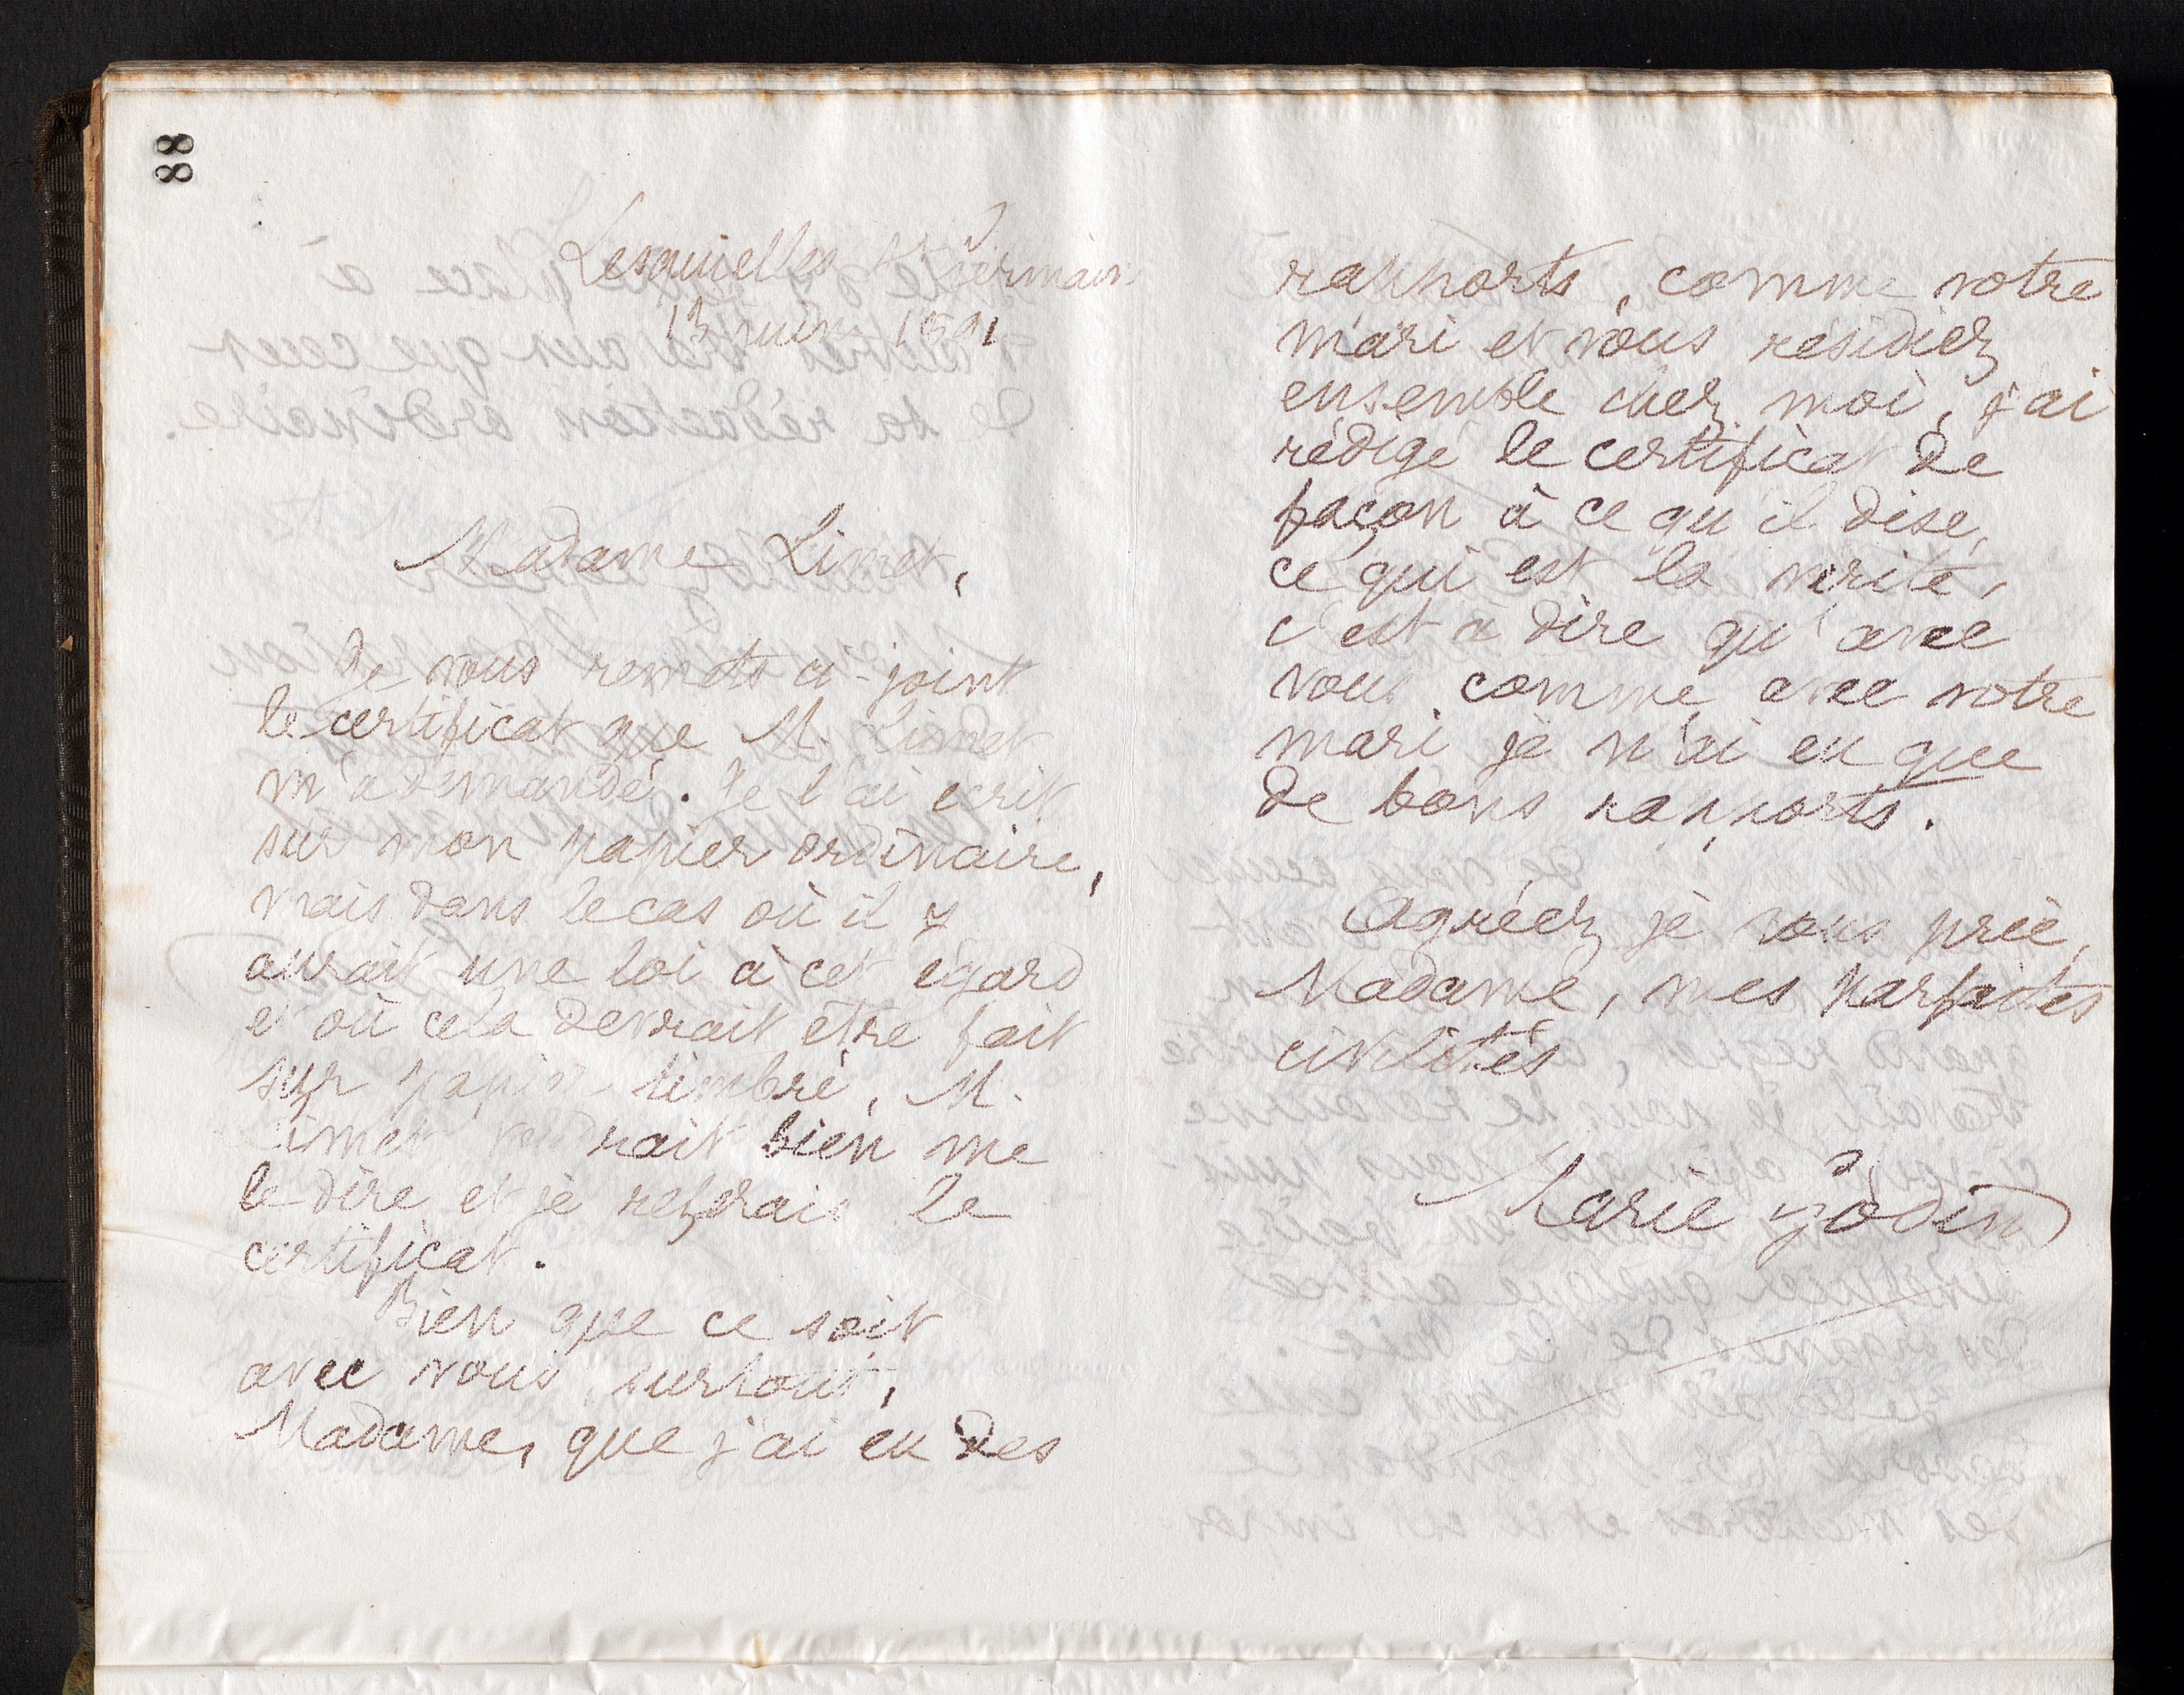 88
Lesquielles St Germain
13 juin 1891
Madame Limet,
Je vous remets ci-joint
le certificat que M. Limet
m'a demandé. Je l'ai écrit
sur mon papier ordinaire,
mais dans le cas où il y
aurait une loi à cet égard
et où cela devrait être fait
sur papier timbré, M.
Limet voudrait bien me
le dire et je referais le
certificat.
Bien que ce soit
avec vous surtout,
Madame, que j'ai eu des
rapports, comme votre
mari et vous résidiez
ensemble chez moi, j'ai
rédigé le certificat de
façon à ce qu'il dise,
ce qui est la vérité,
c'est à dire qu'avec
vous comme avec votre
mari je n'ai eu que
de bons rapports.
Agréez je vous prie,
Madame, mes parfaites
civilités
Marie Godin